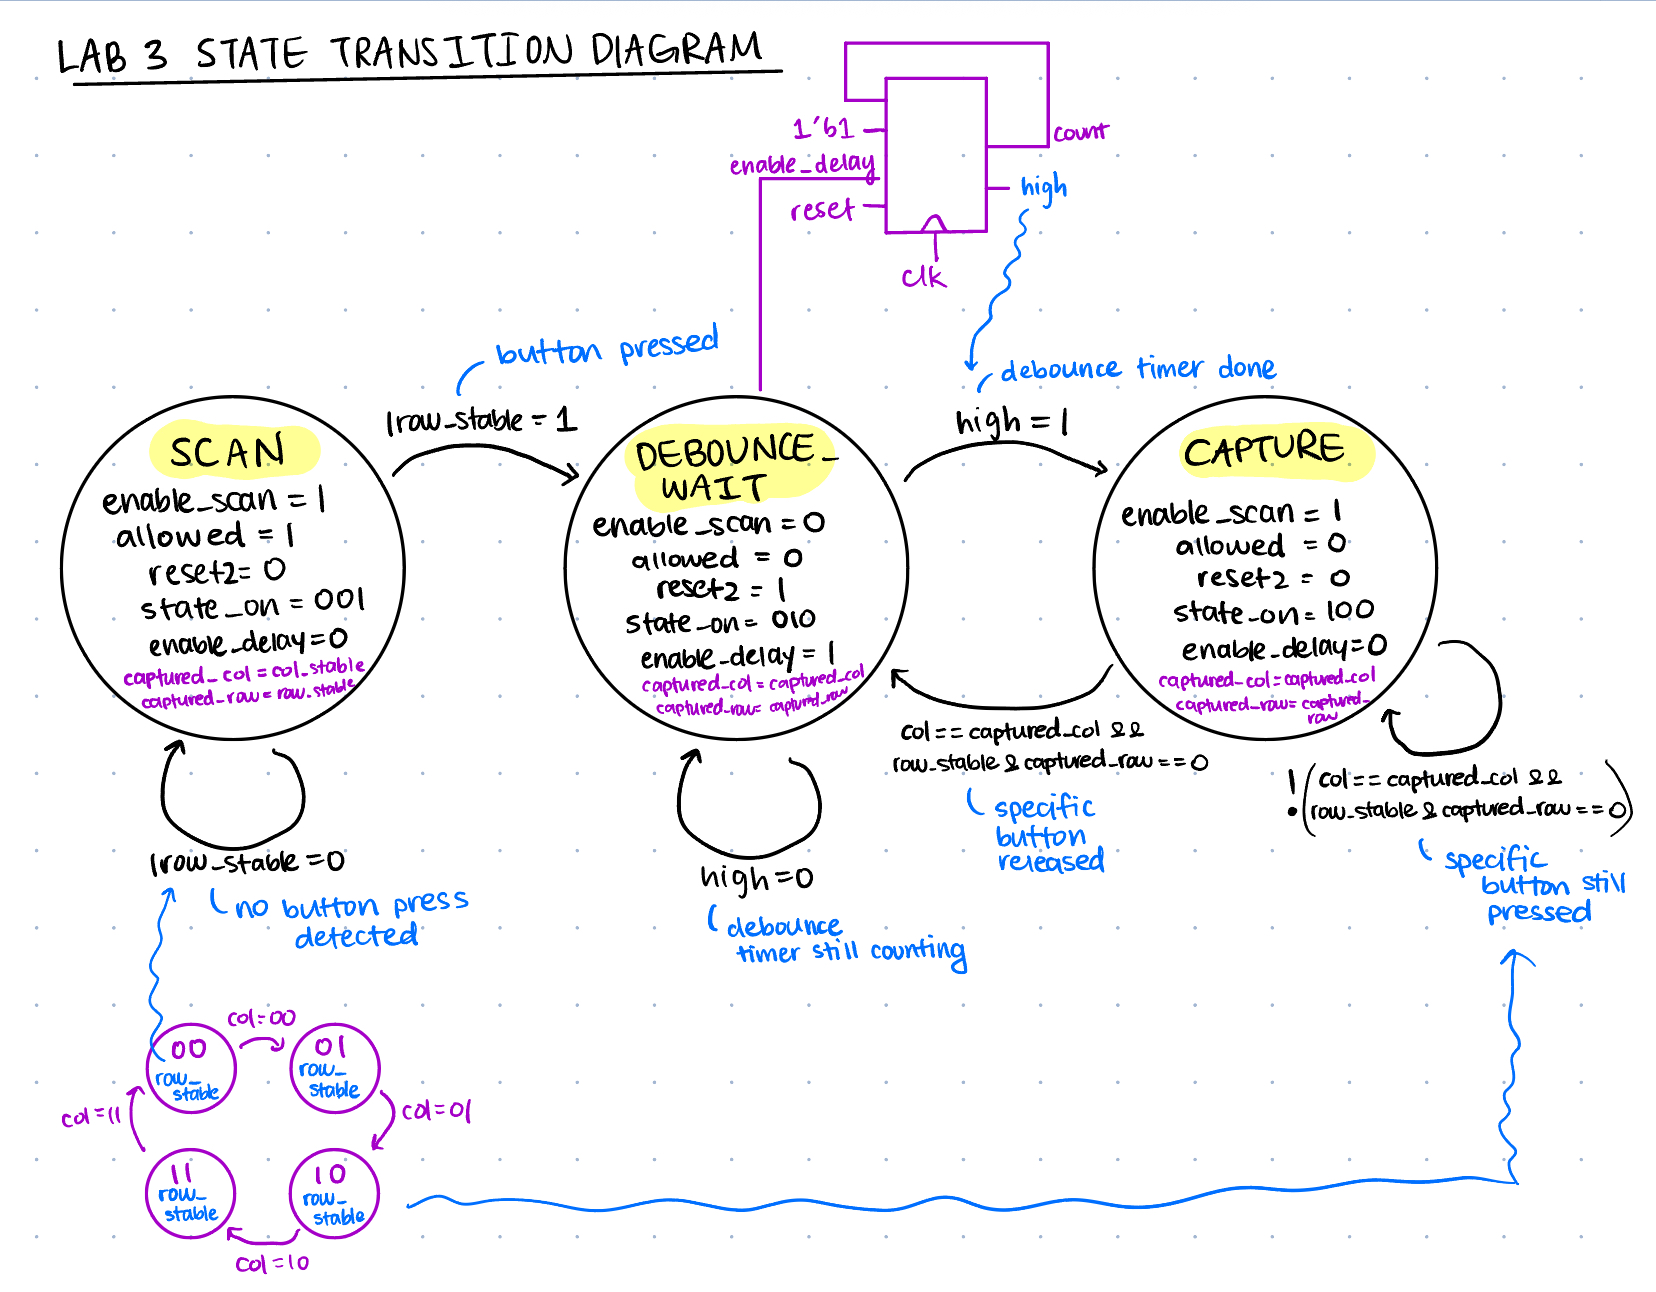 LAB 3 STATE TRANSITION DIAGRAM
1'b1
enable_delay
reset
clk
count
high
button pressed
|row_stable = 1
debounce timer done
high = 1
SCAN
enable_scan = 1
allowed = 1
reset2 = 0
state_on = 001
enable_delay = 0
captured_col = col_stable
captured_row = row_stable
|row_stable = 0
no button press
detected
DEBOUNCE_
WAIT
enable_scan = 0
allowed = 0
reset2 = 1
state_on = 010
enable_delay = 1
captured_col = captured_col
captured_row = captured_row
high = 0
debounce
timer still counting
CAPTURE
enable_scan = 1
allowed = 0
reset2 = 0
state_on = 100
enable_delay = 0
captured_col = captured_col
captured_row = captured_
row
col == captured_col &&
row_stable & captured_row == 0
specific
button
released
!(col == captured_col &&
row_stable & captured_row == 0)
specific
button still
pressed
col=00
00
row_
stable
01
row_
stable
col=11
col=01
11
row_
stable
10
row_
stable
col=10